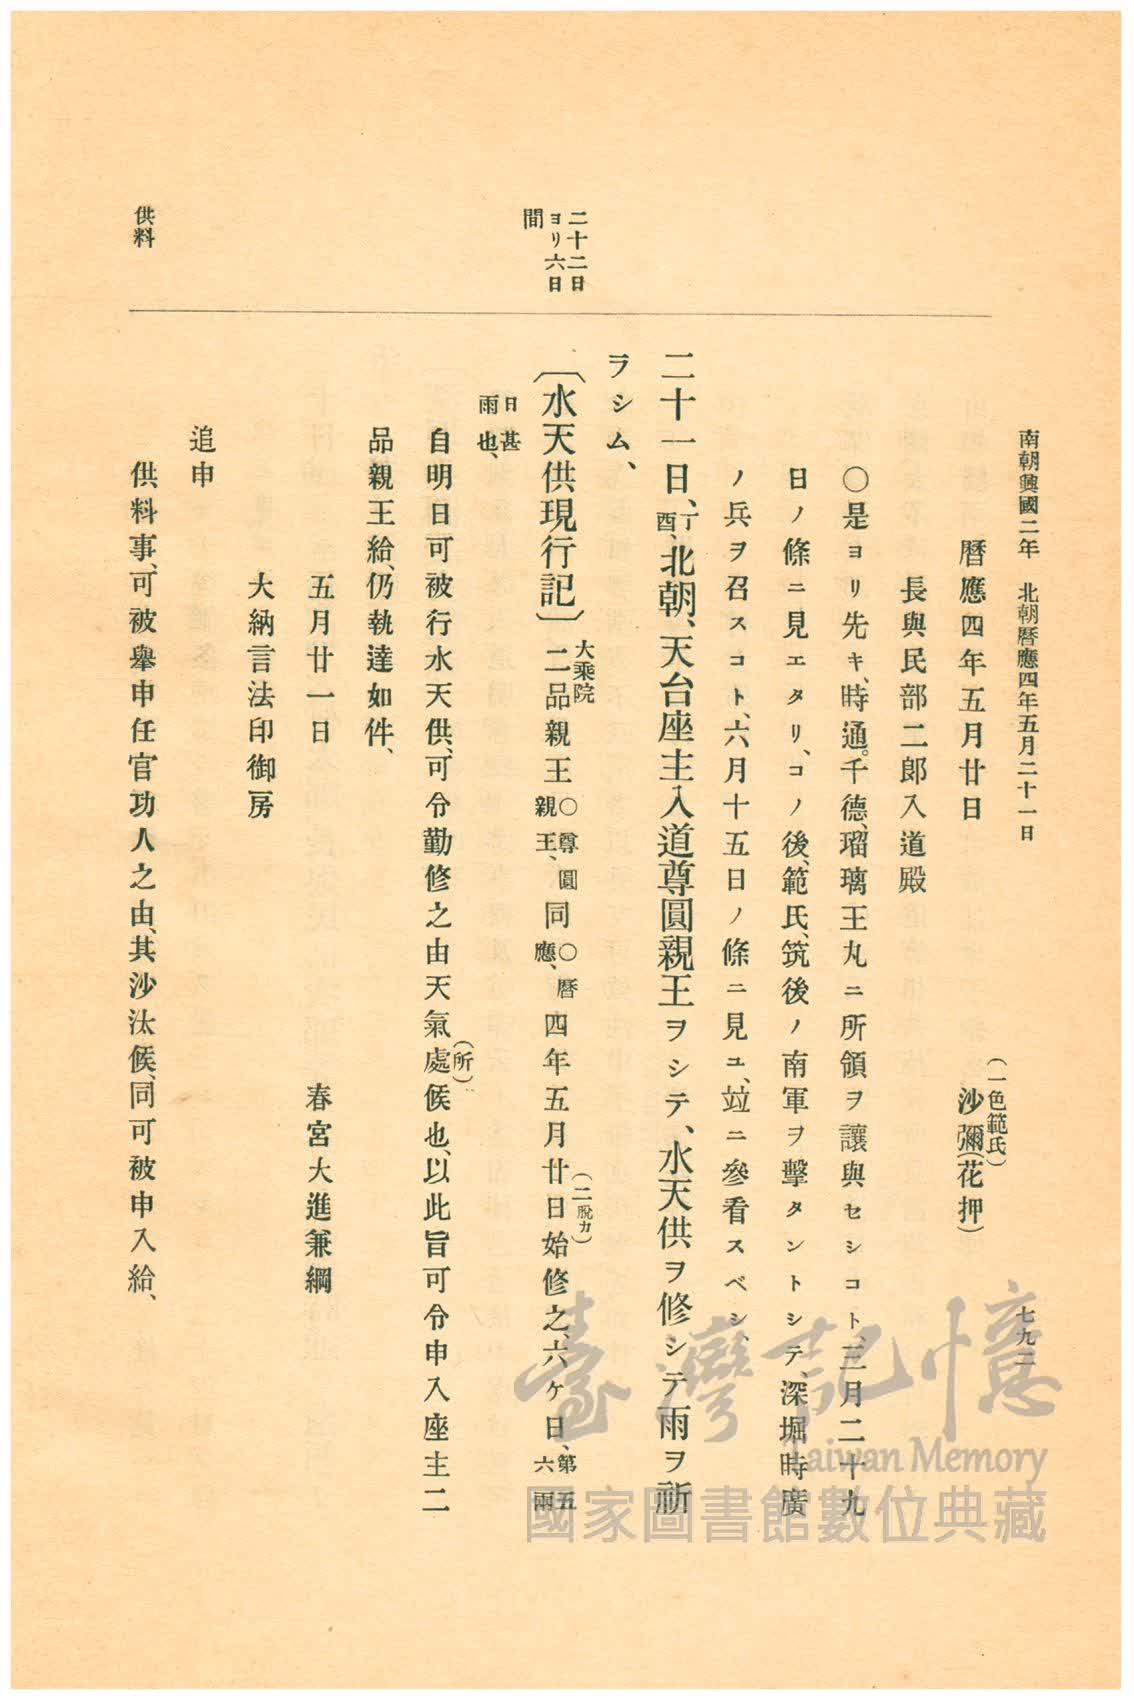 南朝興國二年　北朝曆應四年五月二十一日
七九二
曆應四年五月廿日
(一色範氏)
沙彌(花押)
長與民部二郎入道殿
○是ヨリ先キ、時通。千德、瑠璃王丸ニ所領ヲ讓與セシコト、三月二十九
日ノ條ニ見エタリ、コノ後、範氏、筑後ノ南軍ヲ擊タントシテ、深堀時廣
ノ兵ヲ召スコト、六月十五日ノ條ニ見ユ、竝ニ參看スベシ、
二十一日、丁酉北朝、天台座主入道尊圓親王ヲシテ、水天供ヲ修シテ雨ヲ祈
ラシム、
二十二日
ヨリ六日
間
〔水天供現行記〕大乘院二品親王○尊圓親王、同○曆應、四年五月廿(二脫カ)日始修之、六ケ日、第五六兩
日甚雨也、
自明日可被行水天供、可令勤修之由天氣處(所)候也、以此旨可令申入座主二
品親王給、仍執達如件、
五月廿一日
春宮大進兼綱
大納言法印御房
追申
供料
供料事、可被擧申任官功人之由、其沙汰候、同可被申入給、
臺灣記憶
Taiwan Memory
國家圖書館數位典藏